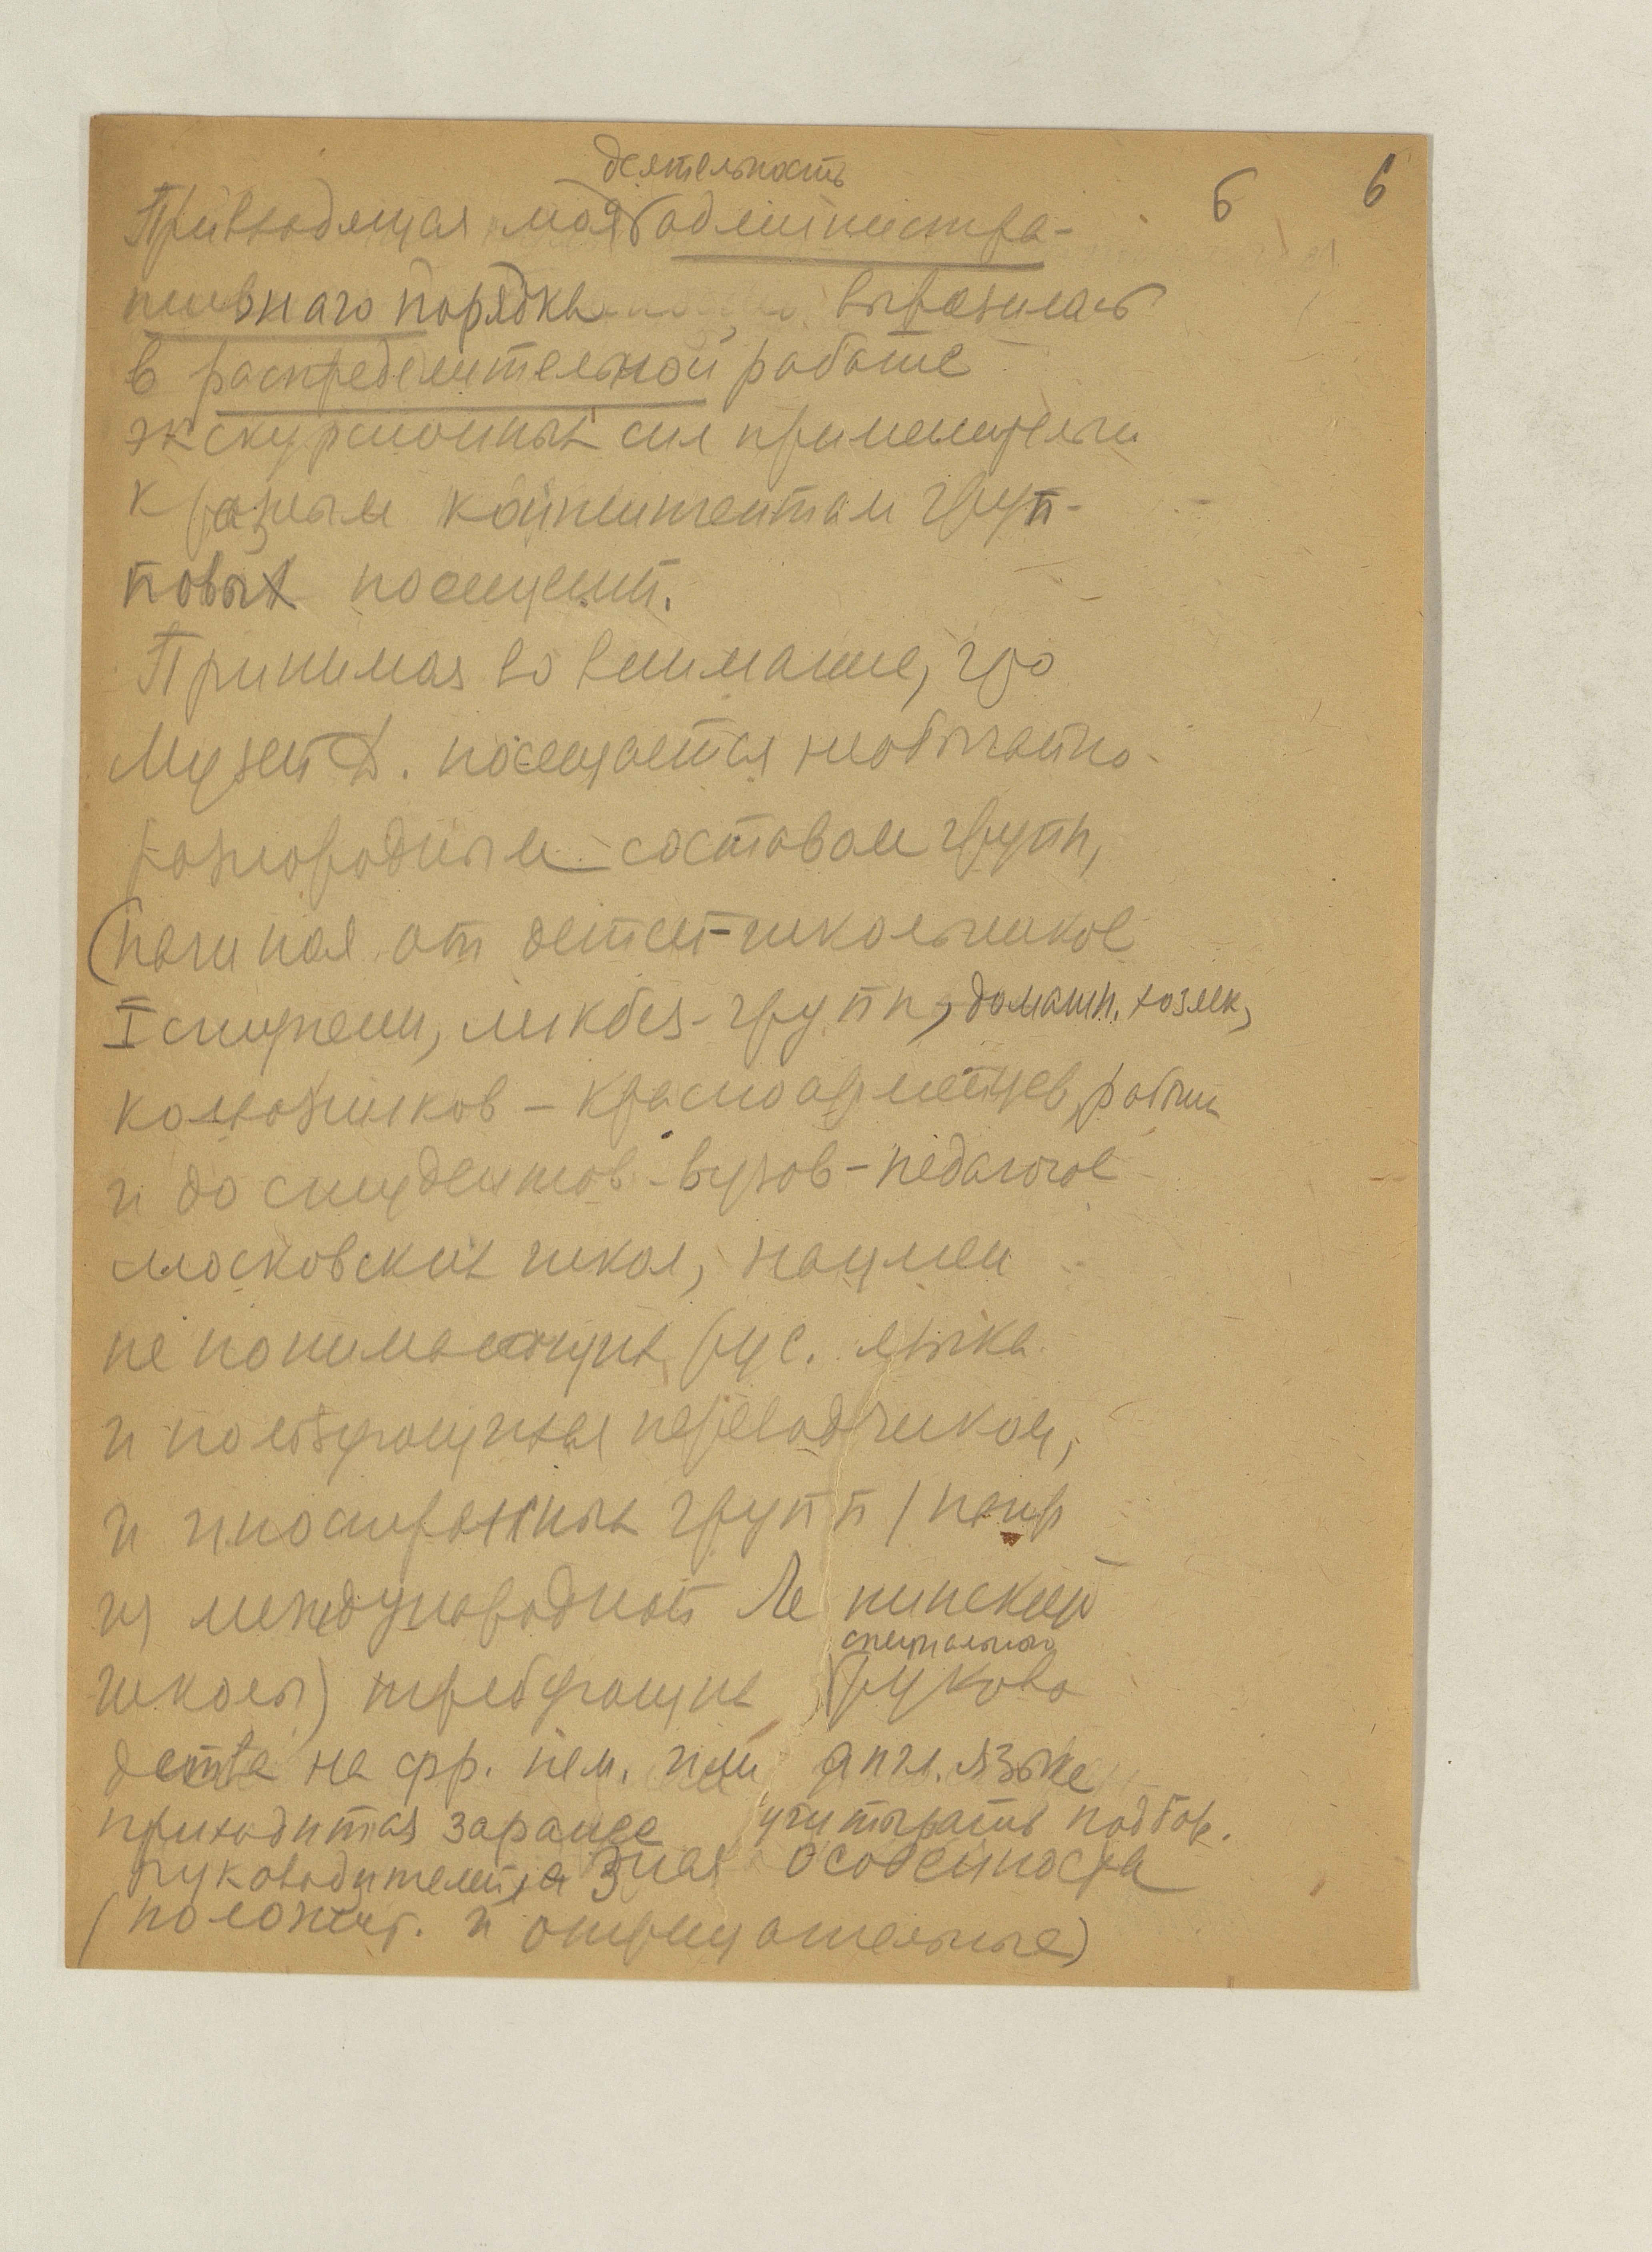 6 6
деятельность
Привходящая моя администра-
тивнаго порядка выразилась
в распределительной работе
экскурсионных сил применительн
к разным контингентам груп-
повых посещений.
Принимая во внимание, что
Музей Д. посещается необычайно
разнородным составом групп,
(начиная от детей-школьников
I ступени, ликбез-групп, домашн. хозяек,
колхозников – красноармейцев, рабочих
и до студентов-вузов-педагогов
московских школ, нацмен
не понимающих рус. языка
и пользующихся переводчиком,
и иностранных групп / напр
из международной Ленинской
специального
школы) требующих руково
дства на фр. нем. или англ. языке
приходится заранее учитывать подбор.
руководителей, зная особенности
(положит. и отрицательные)